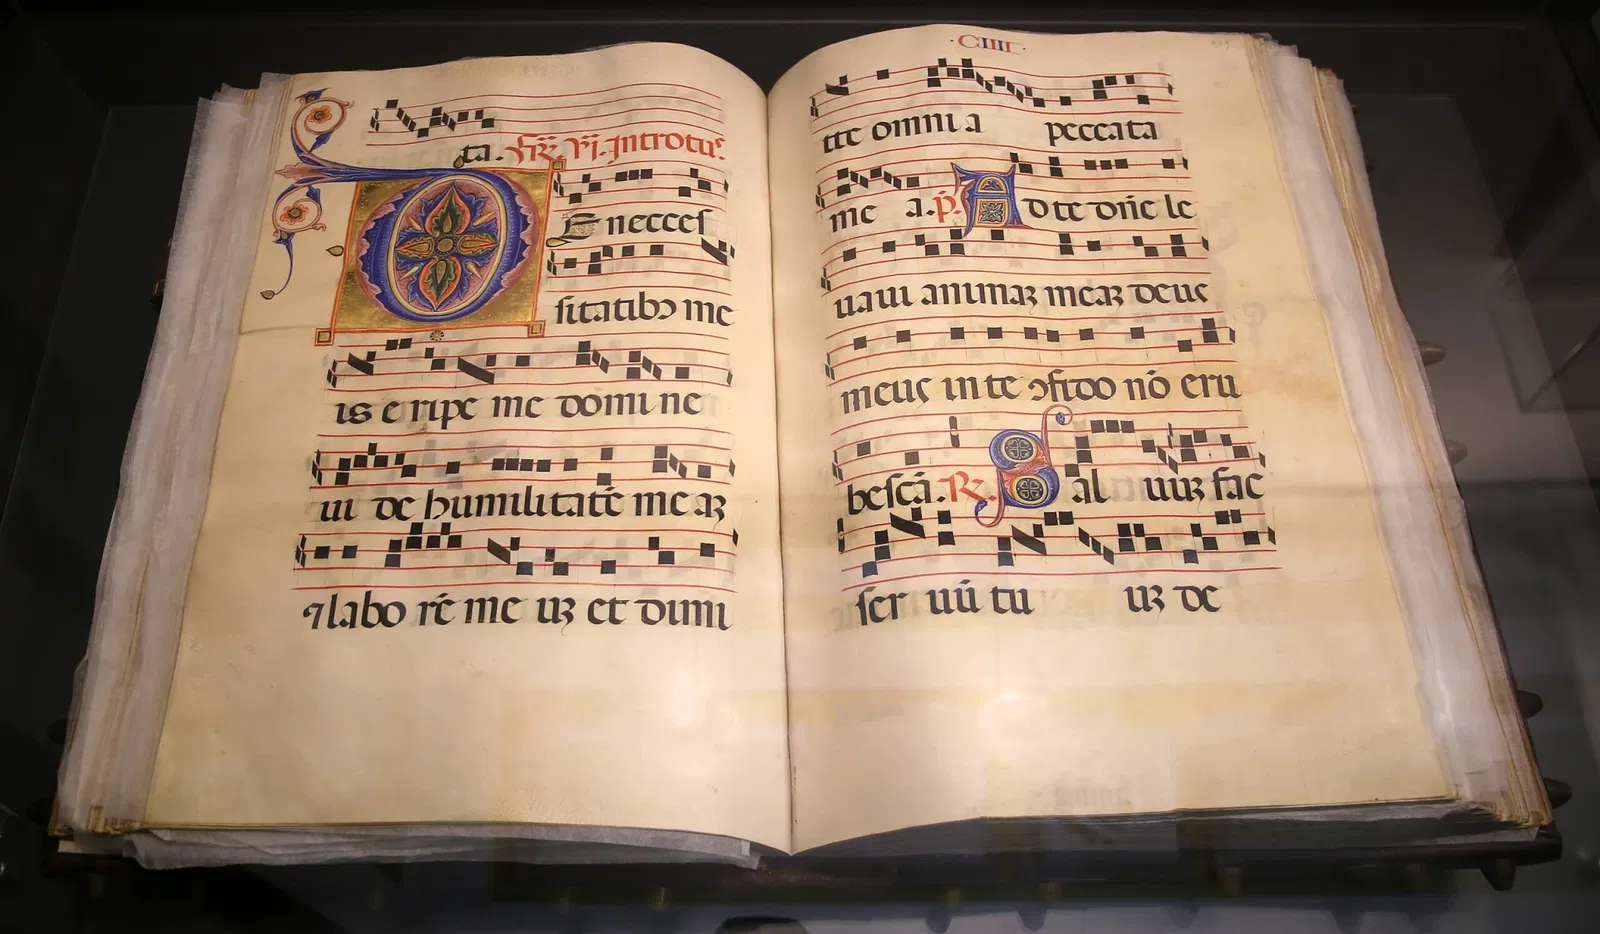 ta. Fr. vj. Introitus.
De necces
sitatibɔ me
is eripe me domine
ui de humilitatē meaꝫ
ꝯlabo rē me uꝫ et dimi
·CIIII·
tte omnia peccata
me a. p̄. Ad te dn̄e le
uaui animaꝫ meaꝫ deus
meus in te ɔfido nō eru
bescā. R. Sal uuꝫ fac
ser uū tu uꝫ de